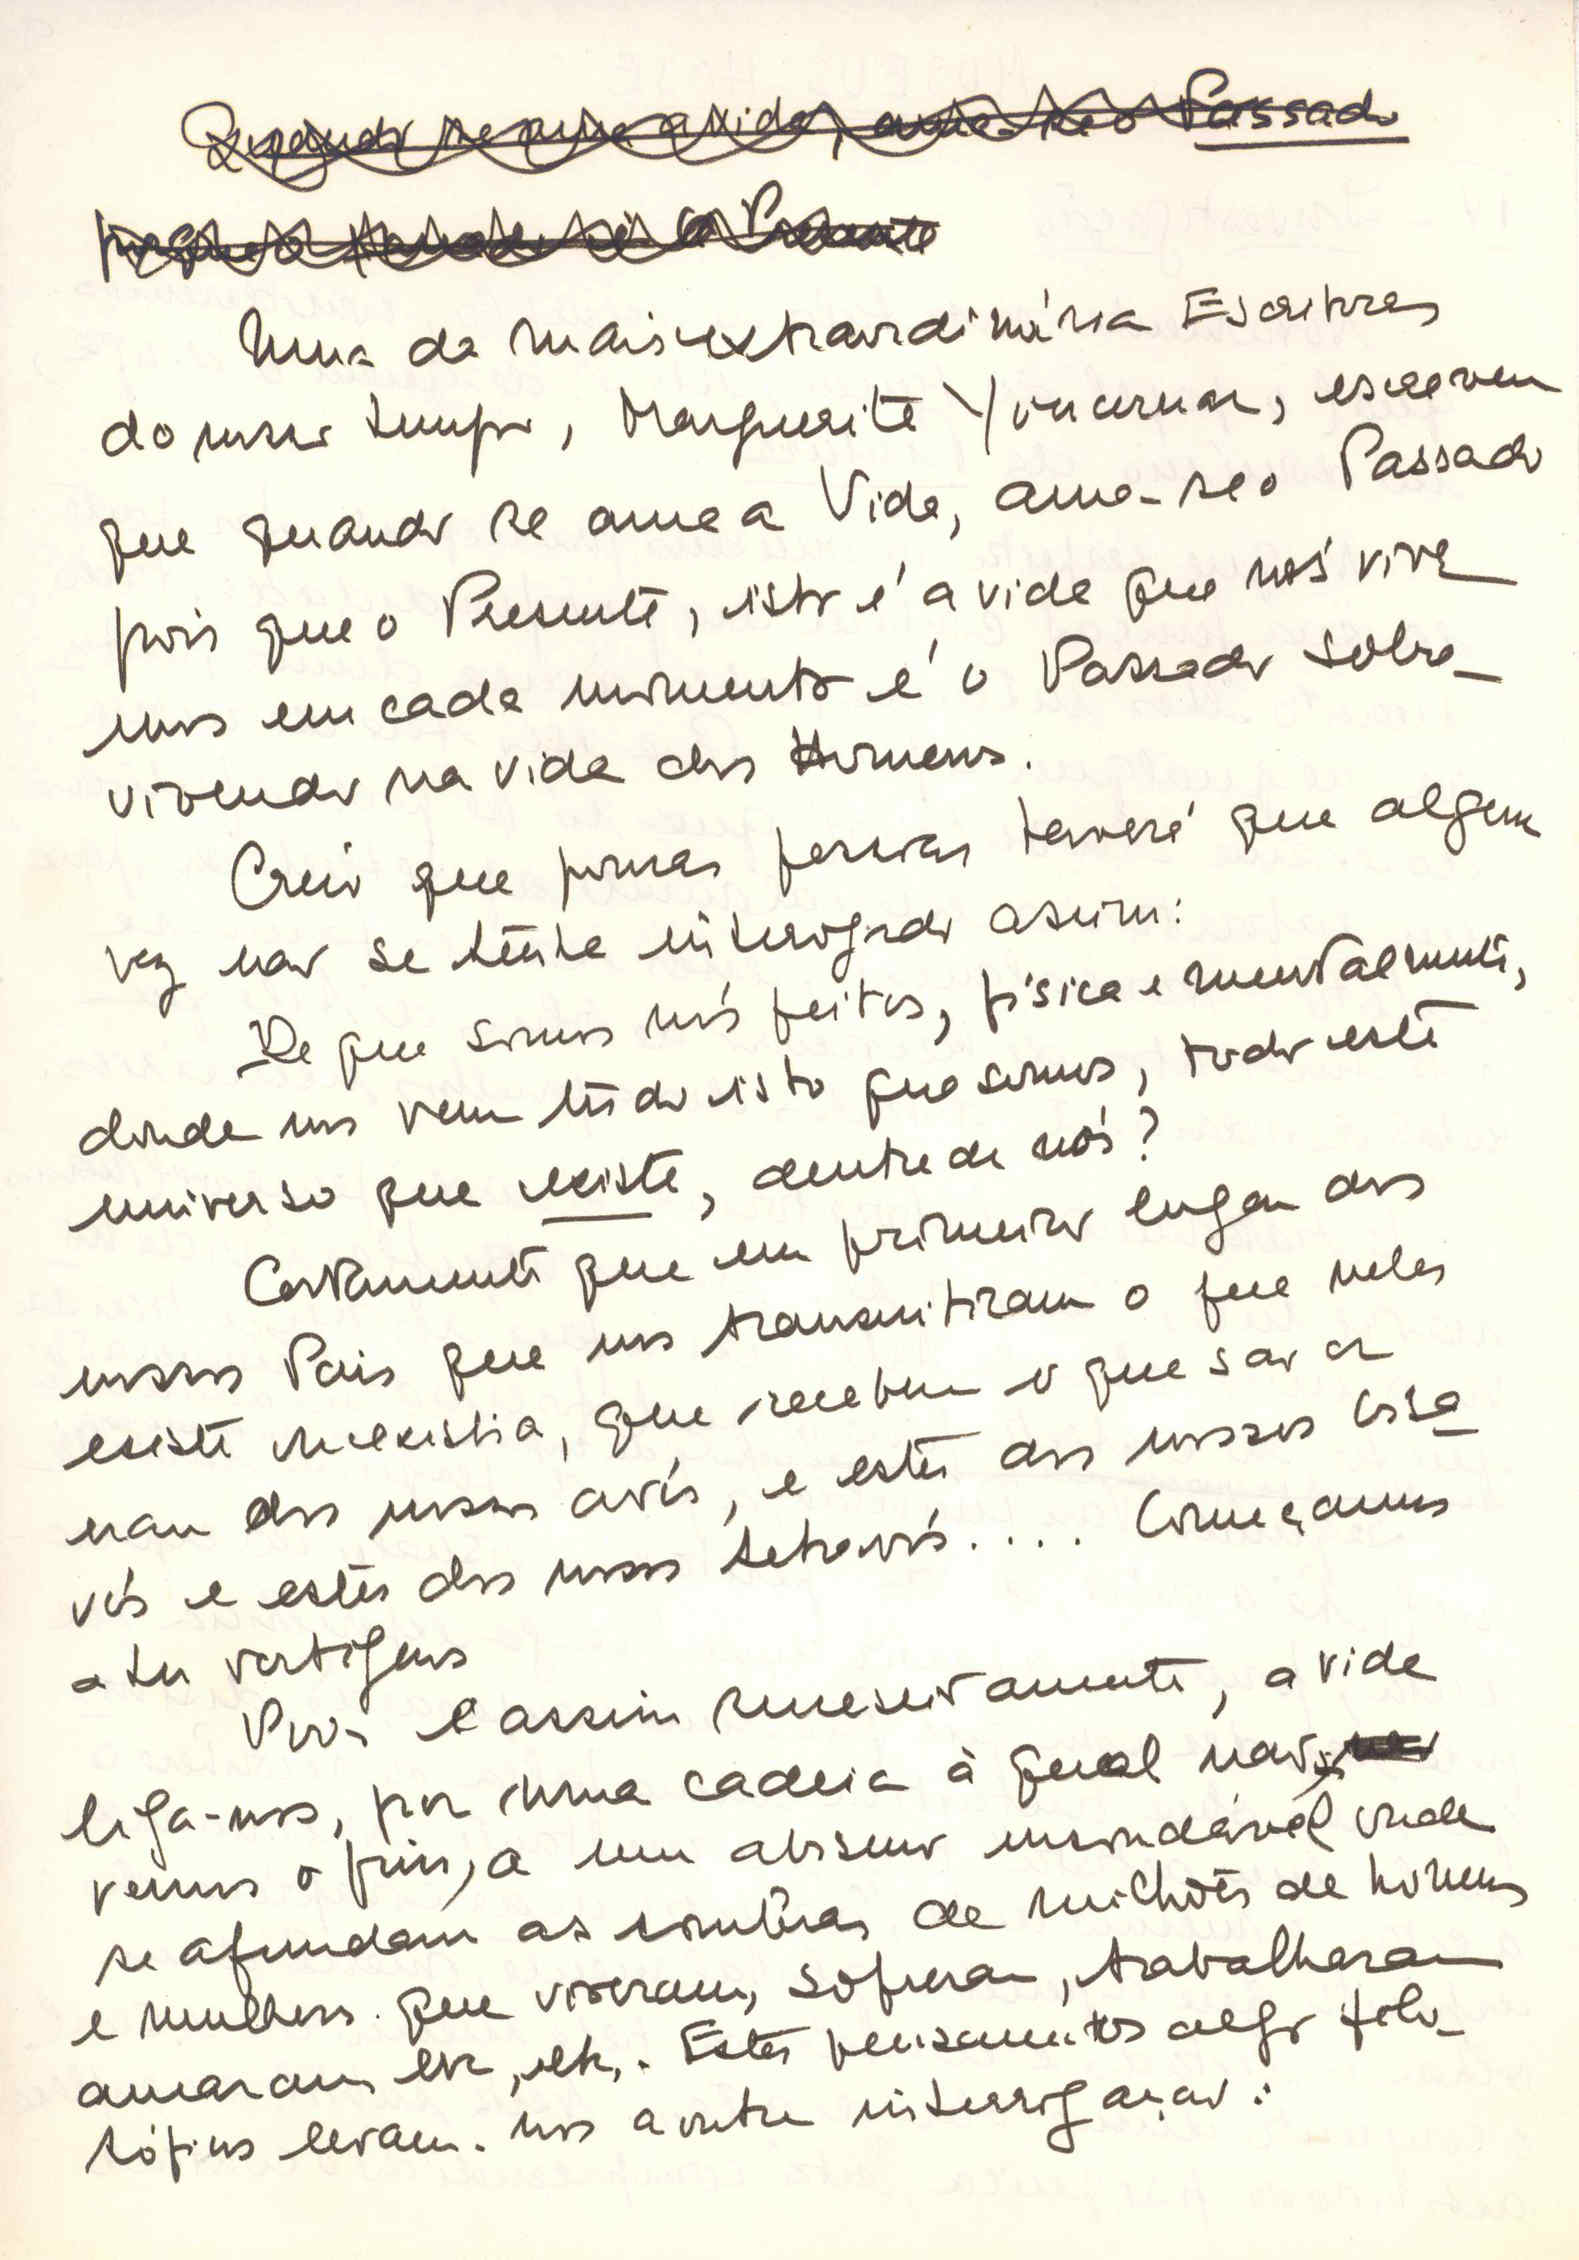 Quando se ama a vida, ama-se o Passado
porque o Passado é o Presente
Uma da mais extraordinária Escritoras
do nosso tempo, Marguerite Yourcenar, escreveu
que quando se ama a Vida, ama-se o Passado
pois que o Presente, isto é a vida que nós vive
mos em cada momento é o Passado sobre-
vivendo na vida dos Homens.
Creio que poucas pessoas haverá que algum
vez não se tenha interrogado assim:
De que somos nós feitos, física e mentalmente,
donde nos vem tudo isto que somos, todo este
universo que existe, dentro de nós?
Certamente que em primeiro lugar dos
nossos Pais que nos transmitiram o que neles
existe ou existia, que recebem o que são a
ram dos nossos avós, e estes dos nossos bisa
vós e estes dos nossos tetravós.... Começamos
a ter vertigens
Pois é assim sucessivamente, a vida
liga-nos, por uma cadeia à qual não
vemos o fim, a um abismo insondável onde
se afundam as sombras de milhões de homens
e mulheres que viveram, sofreram, trabalharam
amaram etc, etc,. Estes pensamentos algo filo-
sóficos levam-nos a outra interrogação: